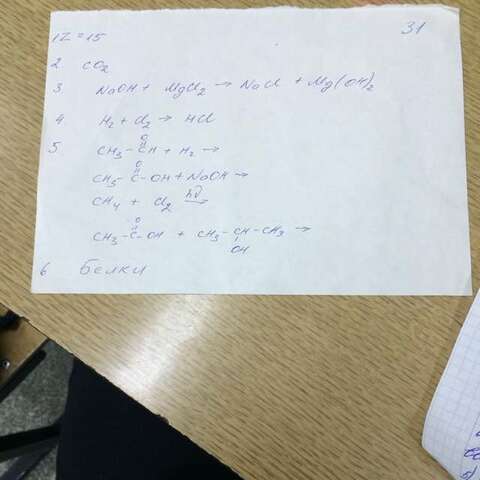 31
1 Z=15
2 CO2
3 NaOH + MgCl2 → NaCl + Mg(OH)2
4 H2 + Cl2 → HCl
O
5 CH3 – CH + H2 →
O
CH3 – C – OH + NaOH →
CH4 + Cl2 hν →
O
CH3 – C – OH + CH3 – CH – CH3 →
OH
6 Белки
5)